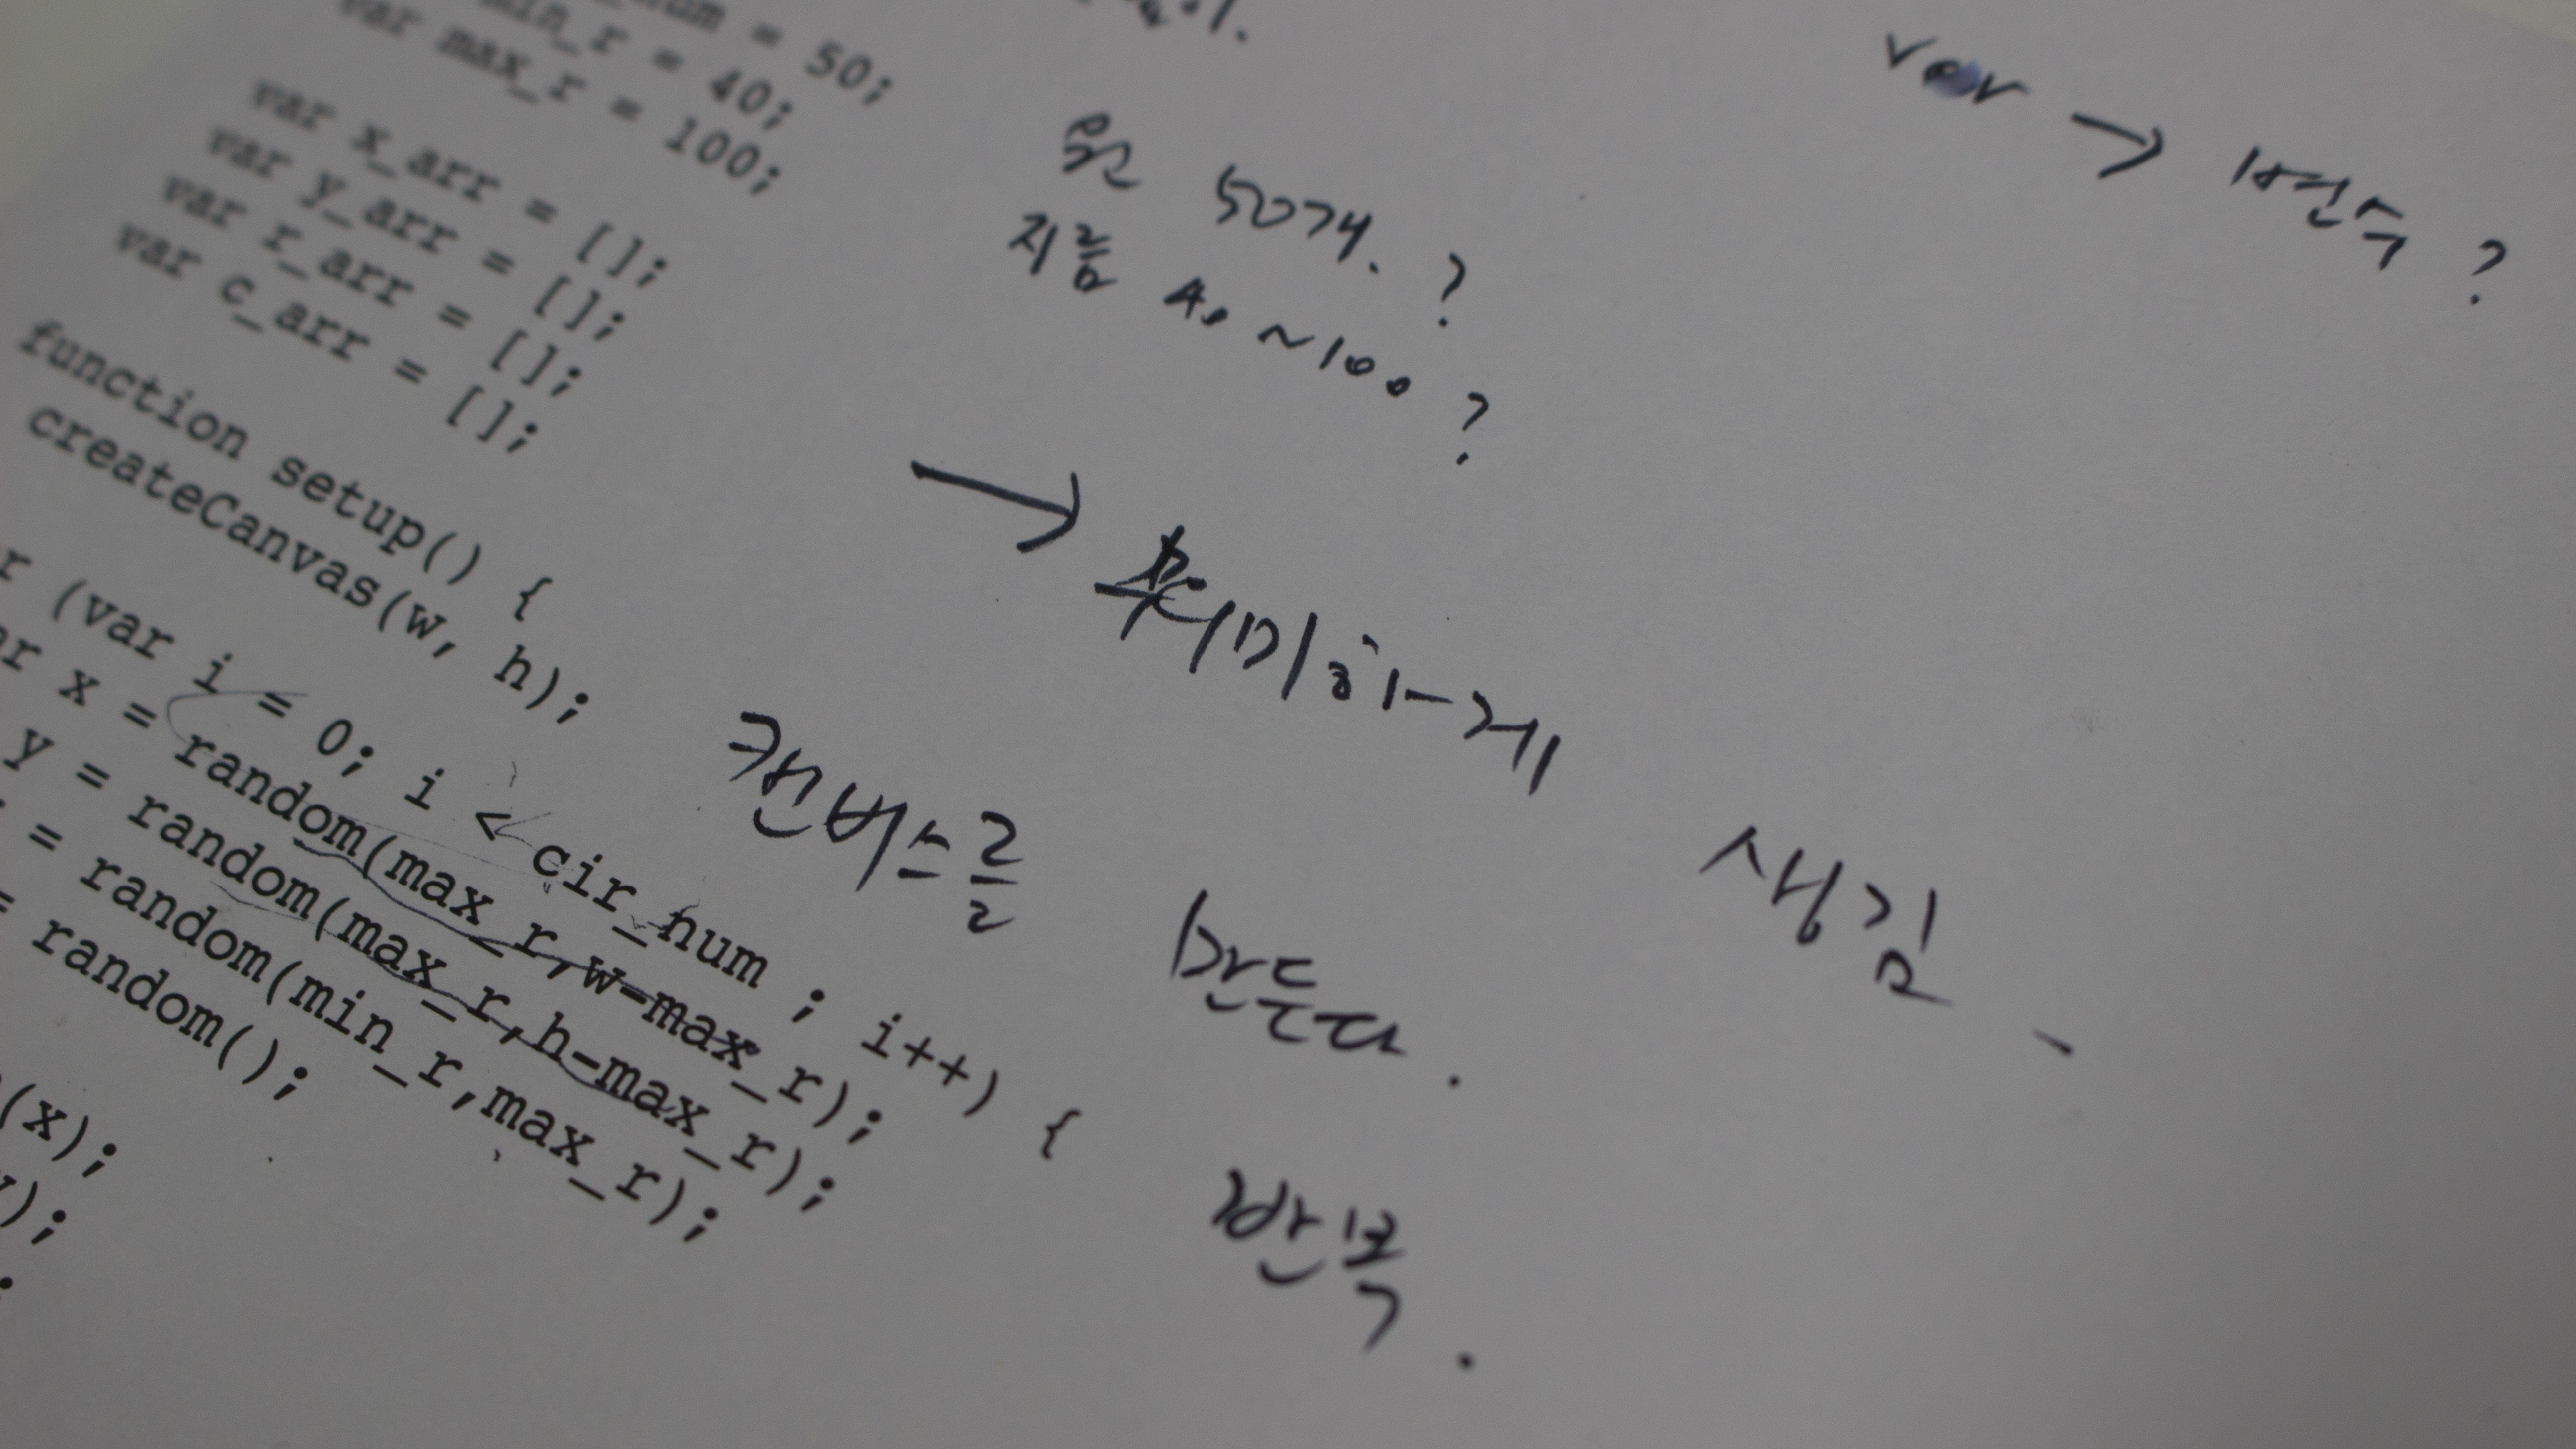 num = 50;
min_r = 40;
var max_r = 100;
var x_arr = [];
var y_arr = [];
var r_arr = [];
var c_arr = [];
function setup() {
createCanvas(w, h);
r (var i = 0; i < cir_num ; i++) {
ar x = random(max_r,w-max_r);
y = random(max_r,h-max_r);
= random(min_r,max_r);
= random();
(x);
);
var → 변수 ?
원 50개. ?
지름 40 ~100 ?
→ 희미하게 생김
캔버스를 만든다.
반복.